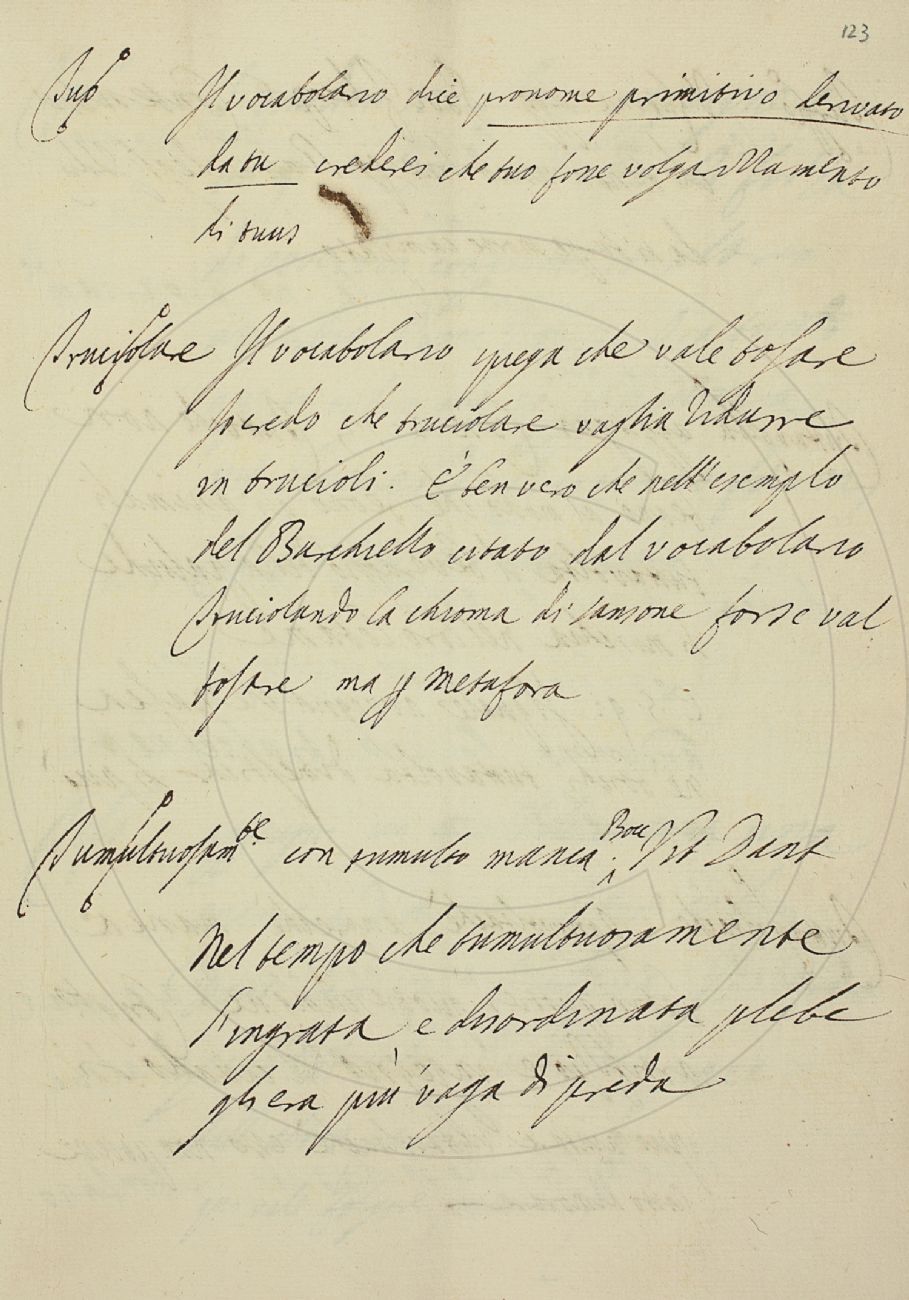 123
Tuo Il vocabolario dice pronome primitivo derivato
da tu crederei che tuo fosse volgarizzamento
di tuus
Truciolare Il vocabolario spiega che vale tosare
Io credo che truciolare vaglia ridurre
in trucioli. È ben vero che nell'esemplo
del Burchiello citato dal vocabolario
Truciolando la chioma di sansone forse val
tosare ma p metafora
Tumultuosam.te con tumulto manca. Bocc Vit Dant
Nel tempo che tumultuosamente
l'ingrata e disordinata plebe
gli era più vaga di preda